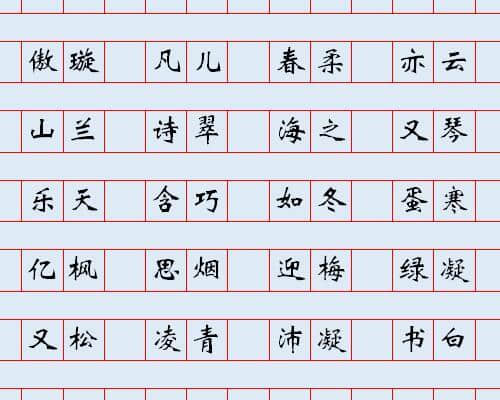 傲璇 凡儿 春柔 亦云
山兰 诗翠 海之 又琴
乐天 含巧 如冬 蛋寒
亿枫 思烟 迎梅 绿凝
又松 凌青 沛凝 书白